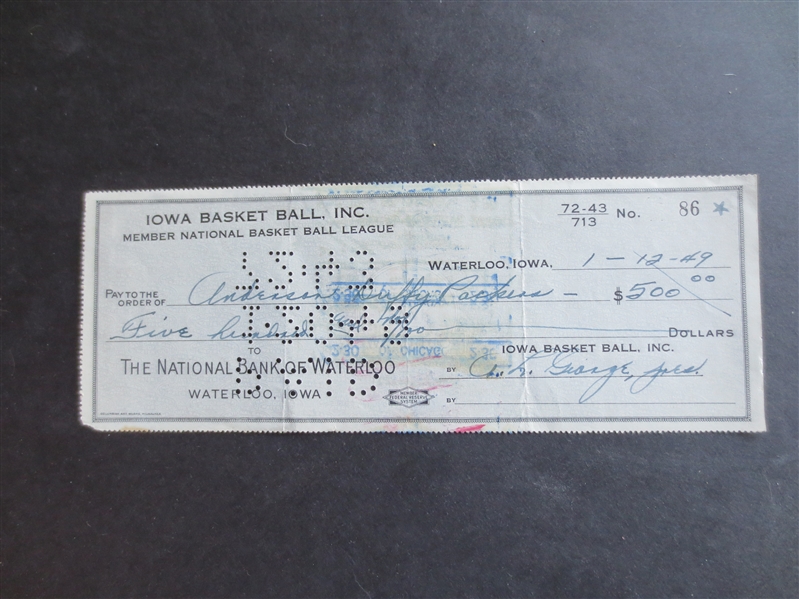 IOWA BASKET BALL, INC.
MEMBER NATIONAL BASKET BALL LEAGUE
72-43
713
No. 86
WATERLOO, IOWA, 1-12-49
PAY TO THE
ORDER OF Anderson Duffy Packers — $500 00
Five hundred and no/100 DOLLARS
TO
THE NATIONAL BANK OF WATERLOO
WATERLOO, IOWA
IOWA BASKET BALL, INC.
BY George, pres.
BY
MEMBER
FEDERAL RESERVE
SYSTEM
OF CHICAGO